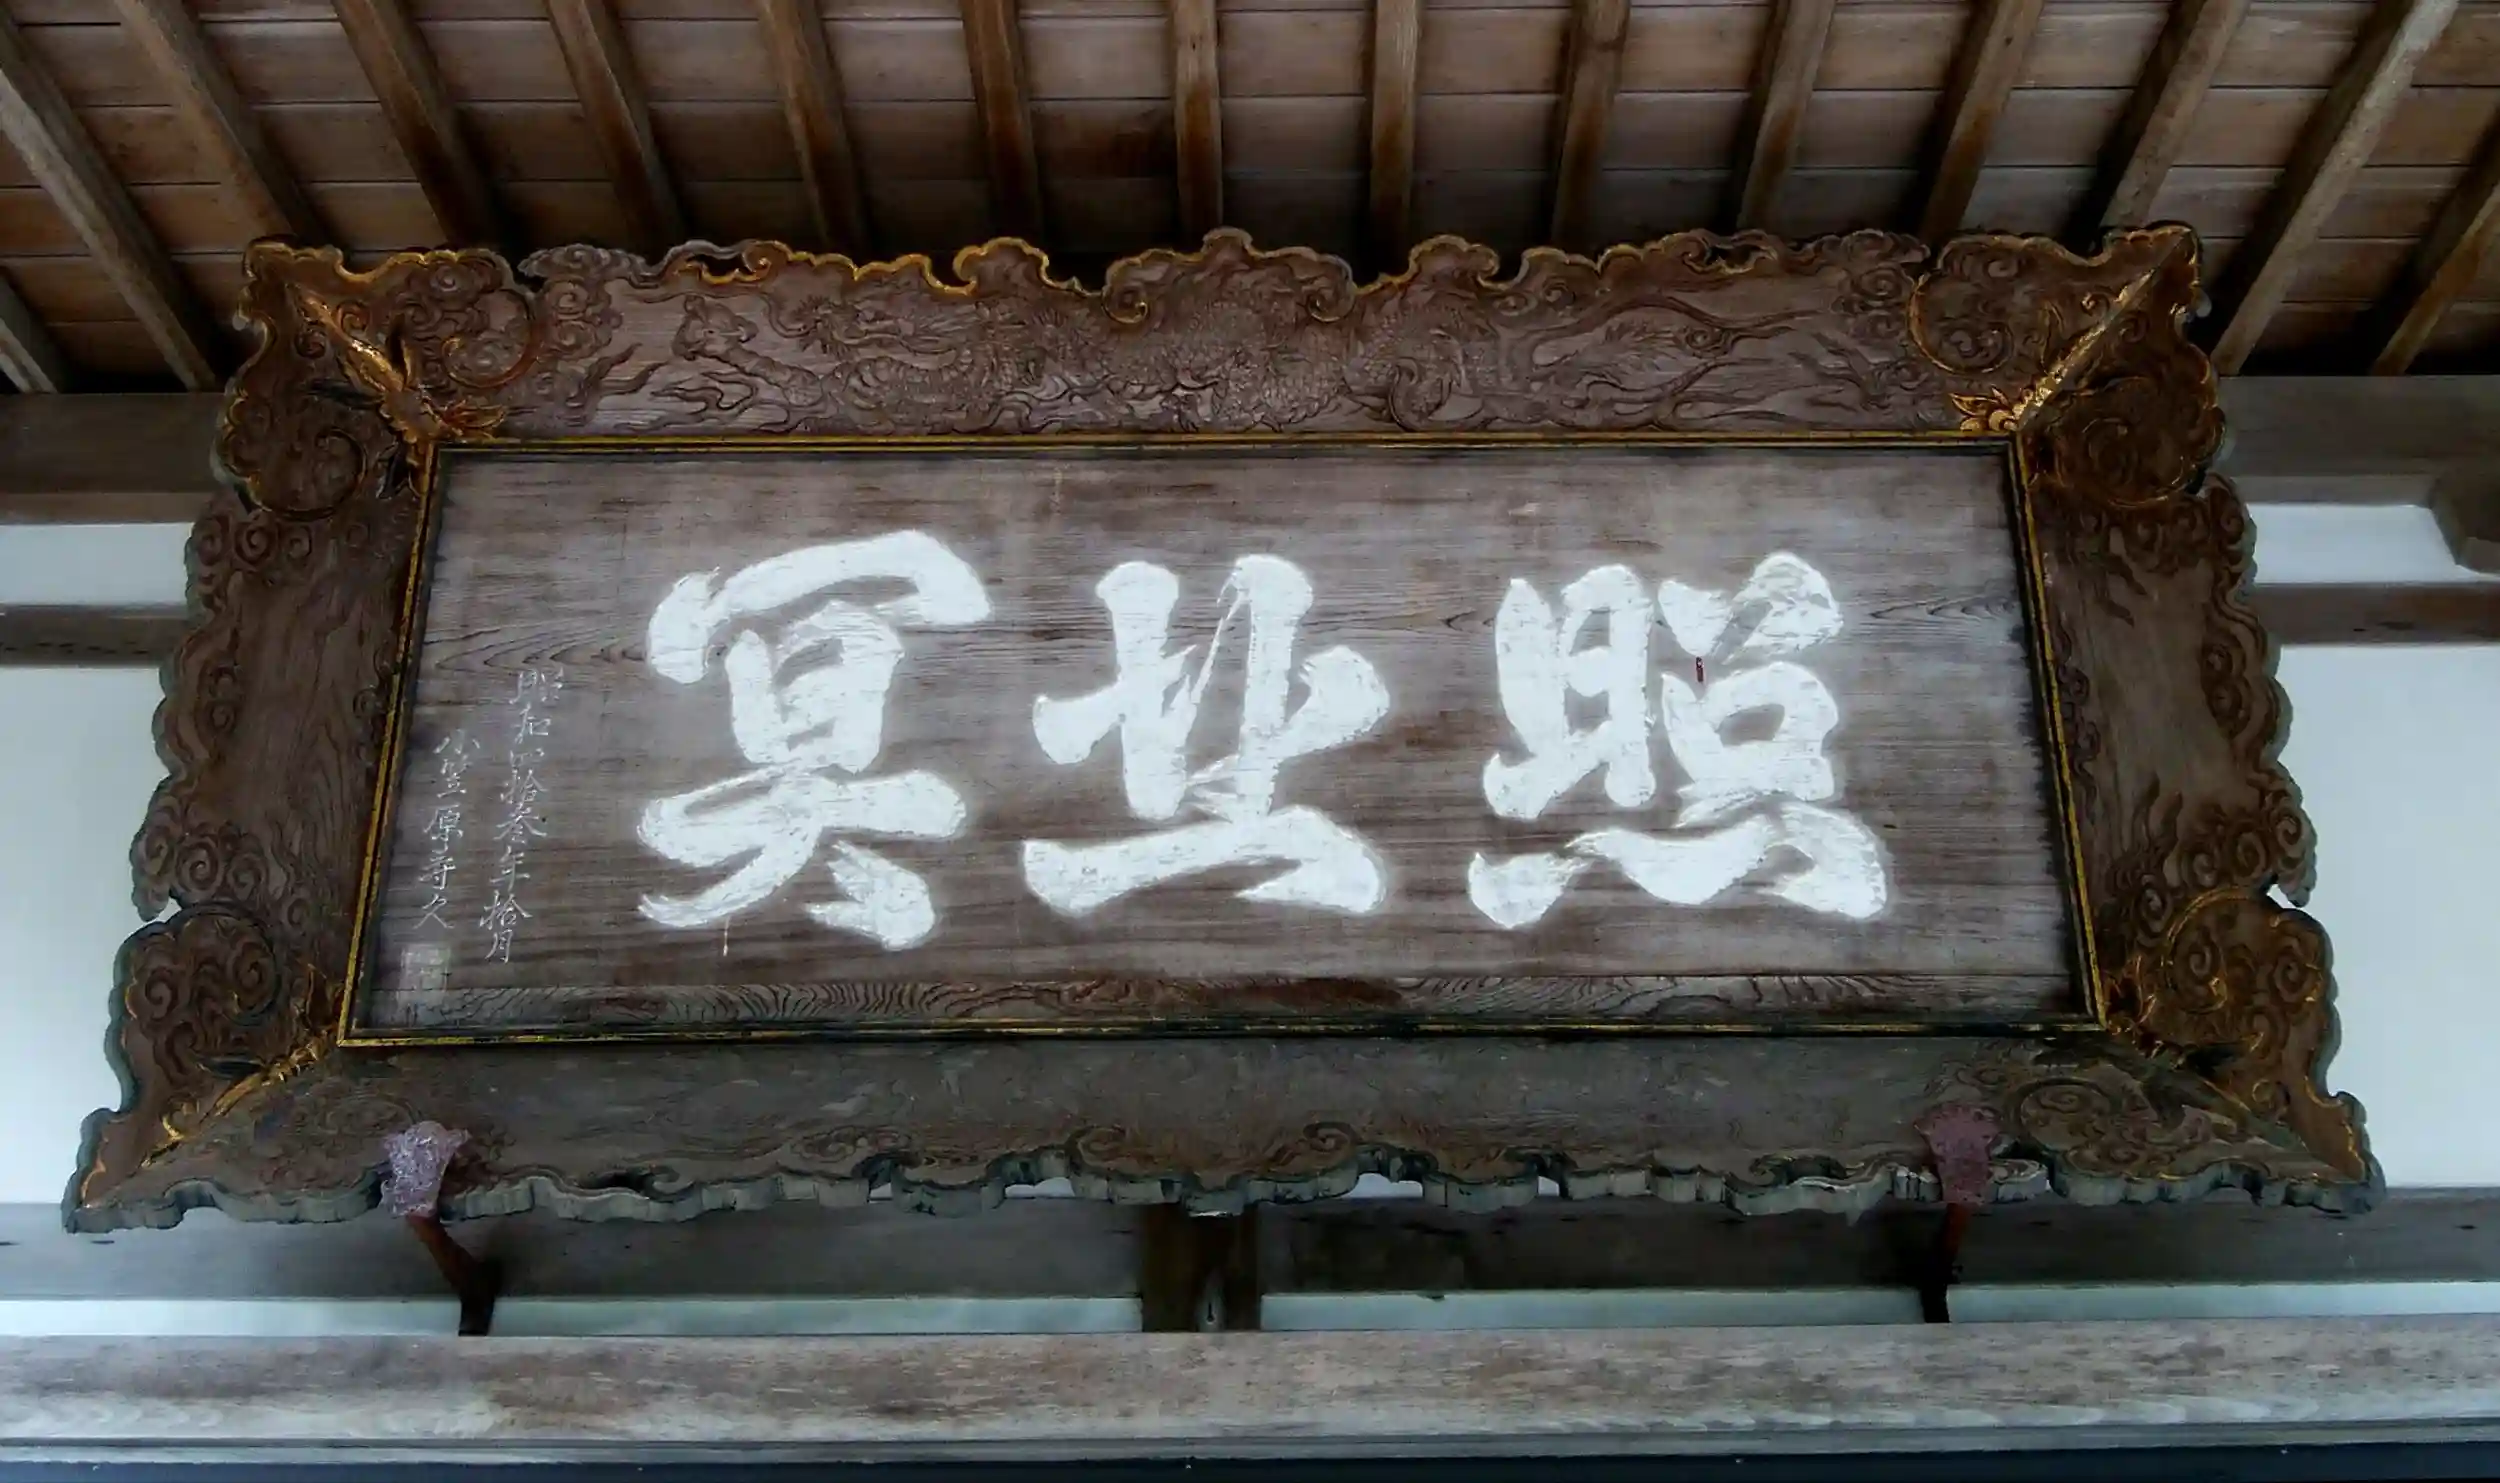 照世冥
昭和四拾参年拾月
小笠原 久